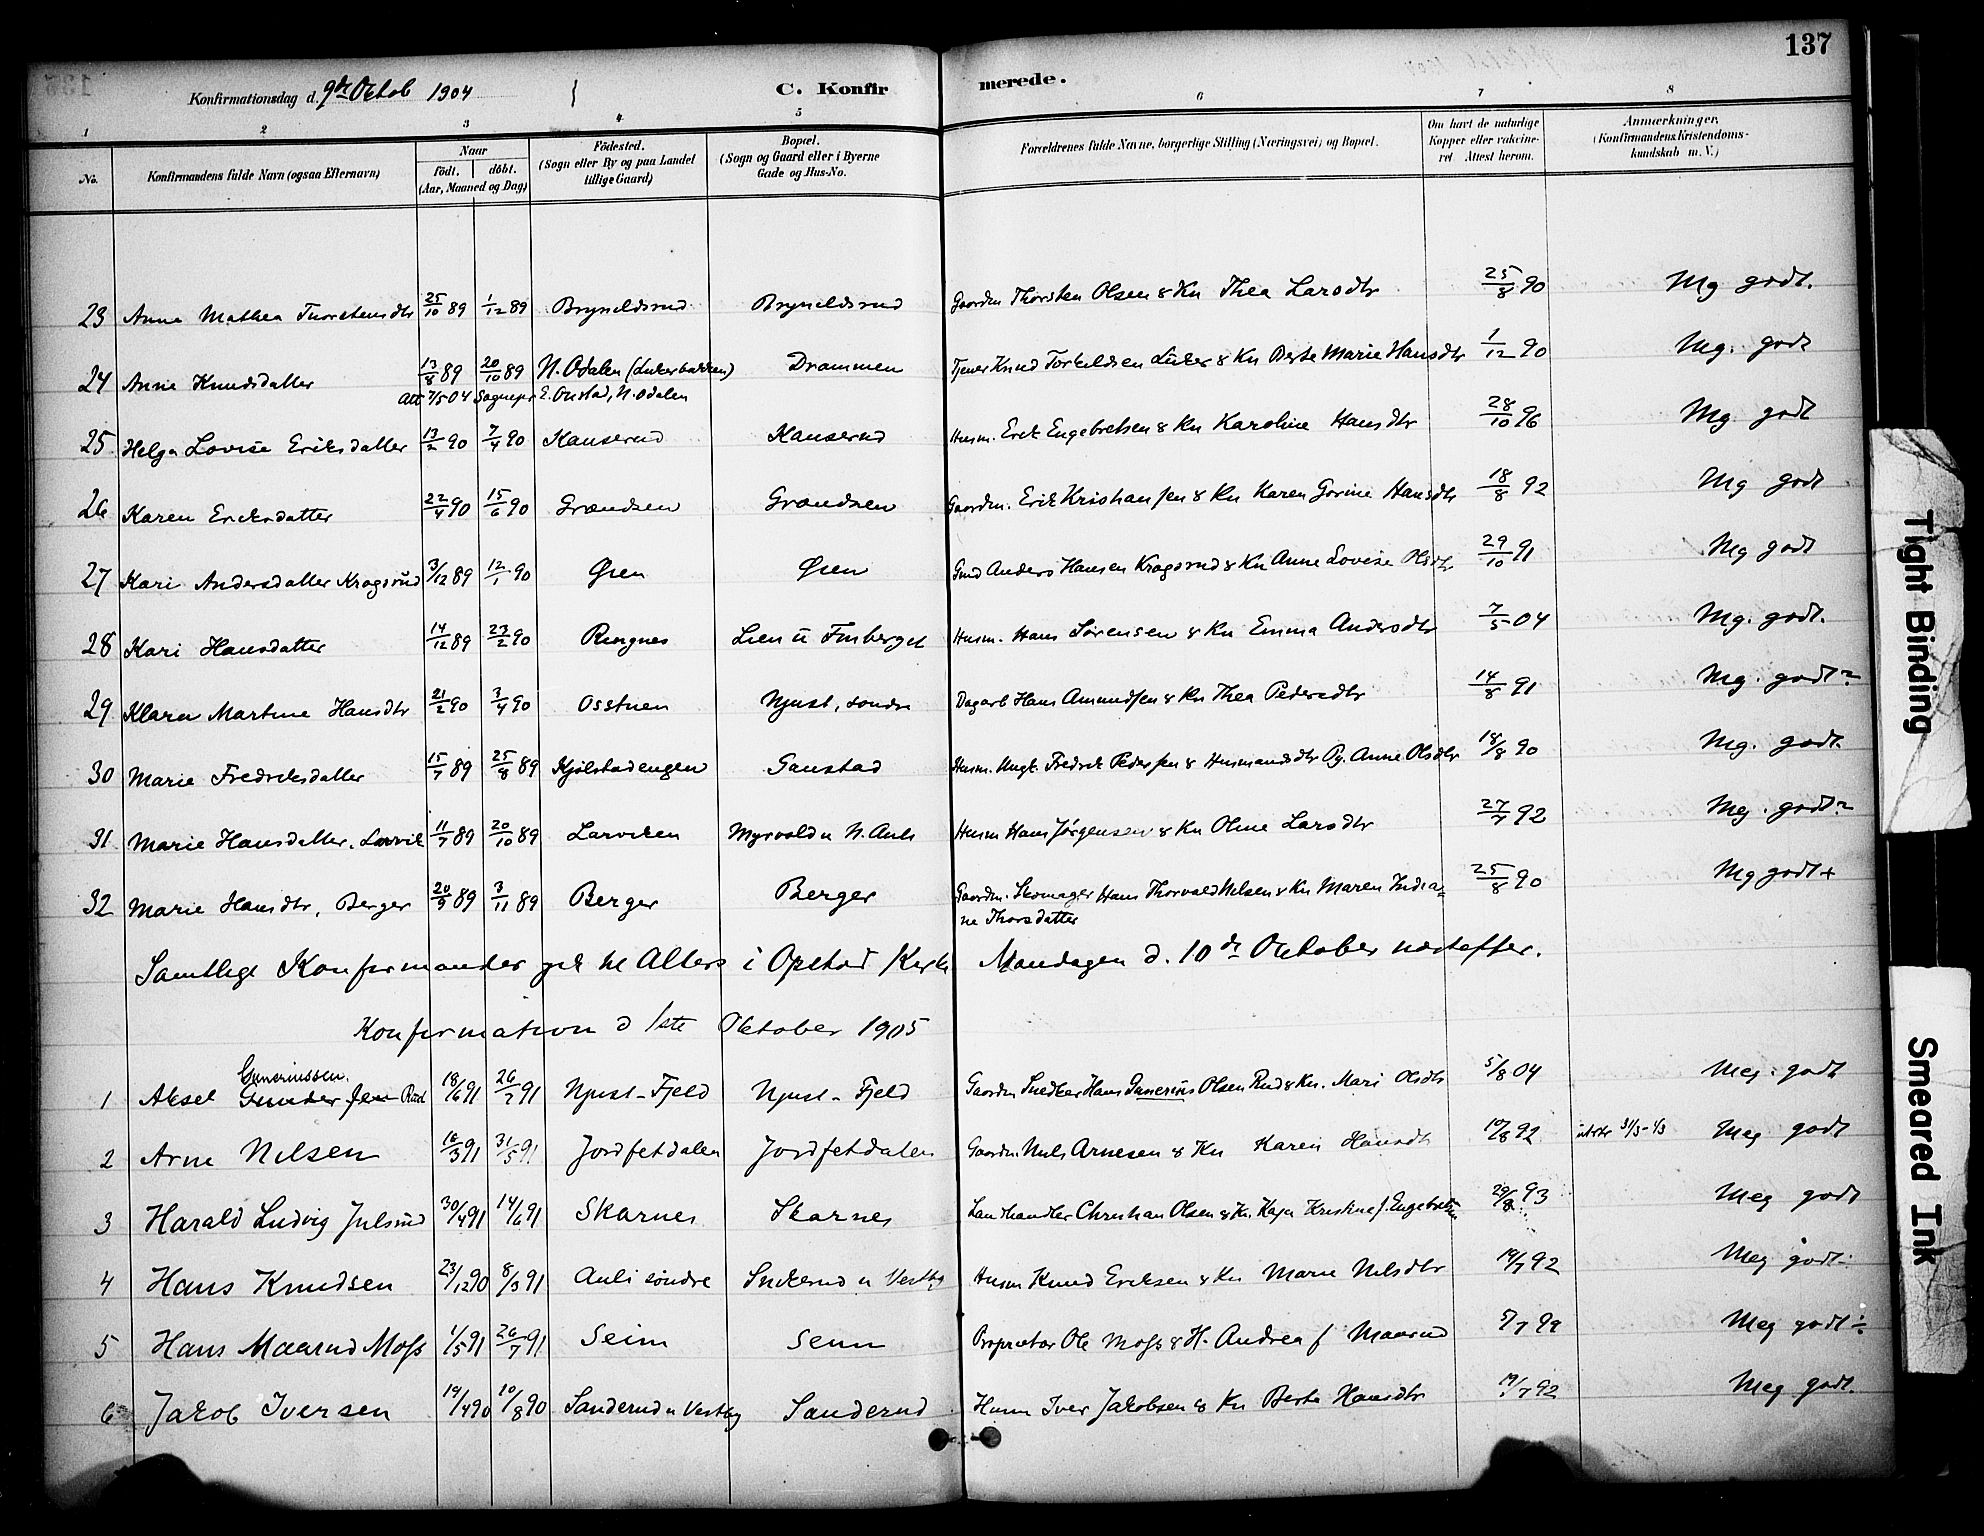 137
Konfirmationsdag d. 9de Oktob 1904 C. Konfirmerede.
1 2 3 4 5 6 7 8
No. Konfirmandens fulde Navn (ogsaa Efternavn) Naar født. døbt. (Aar, Maaned og Dag) Fødested. (Sogn eller By og paa Landet tillige Gaard) Bopæl. (Sogn og Gaard eller i Byerne Gade og Hus-No. Forældrenes fulde Navne, borgerlige Stilling (Næringsvei) og Bopæl. Om havt de naturlige Kopper eller vakcineret Attest herom. Anmærkninger. (Konfirmandens Kristendomskundskab m. V.)
23 Anne Mathea Thorstensdtr 25/10 89 1/12 89 Bryneldsrud Bryneldsrud Gaardm Thorsten Olsen & Kn Thea Larsdtr 25/8 90 Mg godt.
24 Anne Knudsdatter 13/8 89 20/10 89 N. Odalen (Lukerbakken) Drammen Tjener Knud Torkildsen Luker & Kn Berte Marie Hansdtr 1/12 90 Mg. godt
Att 7/5 04 Sognepr E. Onstad, N. Odalen
25 Helga Lovise Eriksdatter 13/2 90 7/4 90 Kauserud Kauserud Husm. Erik Engebretsen & Kn Karoline Hansdtr 28/10 96 Mg. godt
26 Karen Eriksdatter 22/4 90 15/6 90 Grændsen Grændsen Gaardm. Erik Kristiansen & Kn Karen Gorine Hansdtr 18/8 92 Mg godt
27 Kari Andersdatter Kragsrud 3/12 89 12/1 90 Øien Øien Gmd Anders Hansen Kragsrud & Kn Anne Lovise Olsdtr 29/10 91 Mg godt
28 Kari Hansdatter 14/12 89 23/2 90 Ringnes Lien u Finberget Husm. Hans Sørensen & Kn Emma Andersdtr 7/5 04 Mg. godt.
29 Klara Martine Hansdtr 21/2 90 3/4 90 Osstuen Njust, søndre Dagarb Hans Amundsen & Kn Thea Pedersdtr 14/8 91 Mg. godt?
30 Marie Fredriksdatter 15/7 89 25/8 89 Kjølstadengen Gaustad Husm. Ungk. Fredrik Pedersen & Husmandsdtr Pg. Anne Olsdtr 18/8 90 Mg. godt.
31 Marie Hansdatter. Larvik 11/7 89 20/10 89 Larviken Myrvold u N. Auli Husm Hans Jørgensen & Kn Oline Larsdtr 27/7 92 Mg. godt?
32 Marie Hansdtr, Berger 20/9 89 3/11 89 Berger Berger Gaardm. Skomager Hans Thorvald Nilsen & Kn Maren Indiane Thorsdatter 25/8 90 Mg godt +
Samtlige Konfirmander gik til Alters i Opstad Kirke Mandagen d. 10de Oktober næstefter.
Konfirmation d 1ste Oktober 1905
1 Aksel Gunderssen Gunerinssen. Rud 18/6 91 26/7 91 Njust-Fjeld Njust-Fjeld Gaardm Snedker Hans Gunerius Olsen Rud & Kn. Mari Olsdtr 5/8 04 Meg. godt
2 Arne Nilsen 16/3 91 31/5 91 Jordfetdalen Jordfetdalen Gaardm. Nils Arnesen & Kn Karen Hansdt 10/8 92 Meg godt
3 Harald Ludvig Julsrud 30/4 91 14/6 91 Skarnes Skarnes Landhandler Christian Olsen & Kn. Kaja Kristine f. Engebretsen 29/8 93 Meg godt
4 Hans Knudsen 23/12 90 8/3 91 Auli søndre Snikerud u Vestby Husm Knud Eriksen & Kn Marie Nilsdtr 19/7 92 Meg godt.
5 Hans Maarud Moss 1/5 91 26/7 91 Seim Seim Proprietær Ole Moss & H. Andrea f Maarud 5/7 99 Meg godt
6 Jakob Iversen 19/4 90 10/8 90 Sanderud u Vestby Sanderud Husm Iver Jakobsen & Kn Berte Hansdtr 19/7 92 Meg godt.
Tight Binding
Smeared Ink